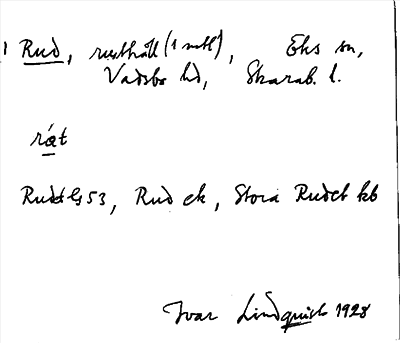 1 Rud, rusthåll (1 mtl), Eks sn,
Vadsbo hd, Skarab. l.
ræ̂t
Rudet G 53, Rud ek, Stora Rudet kb
Ivar Lindquist 1928